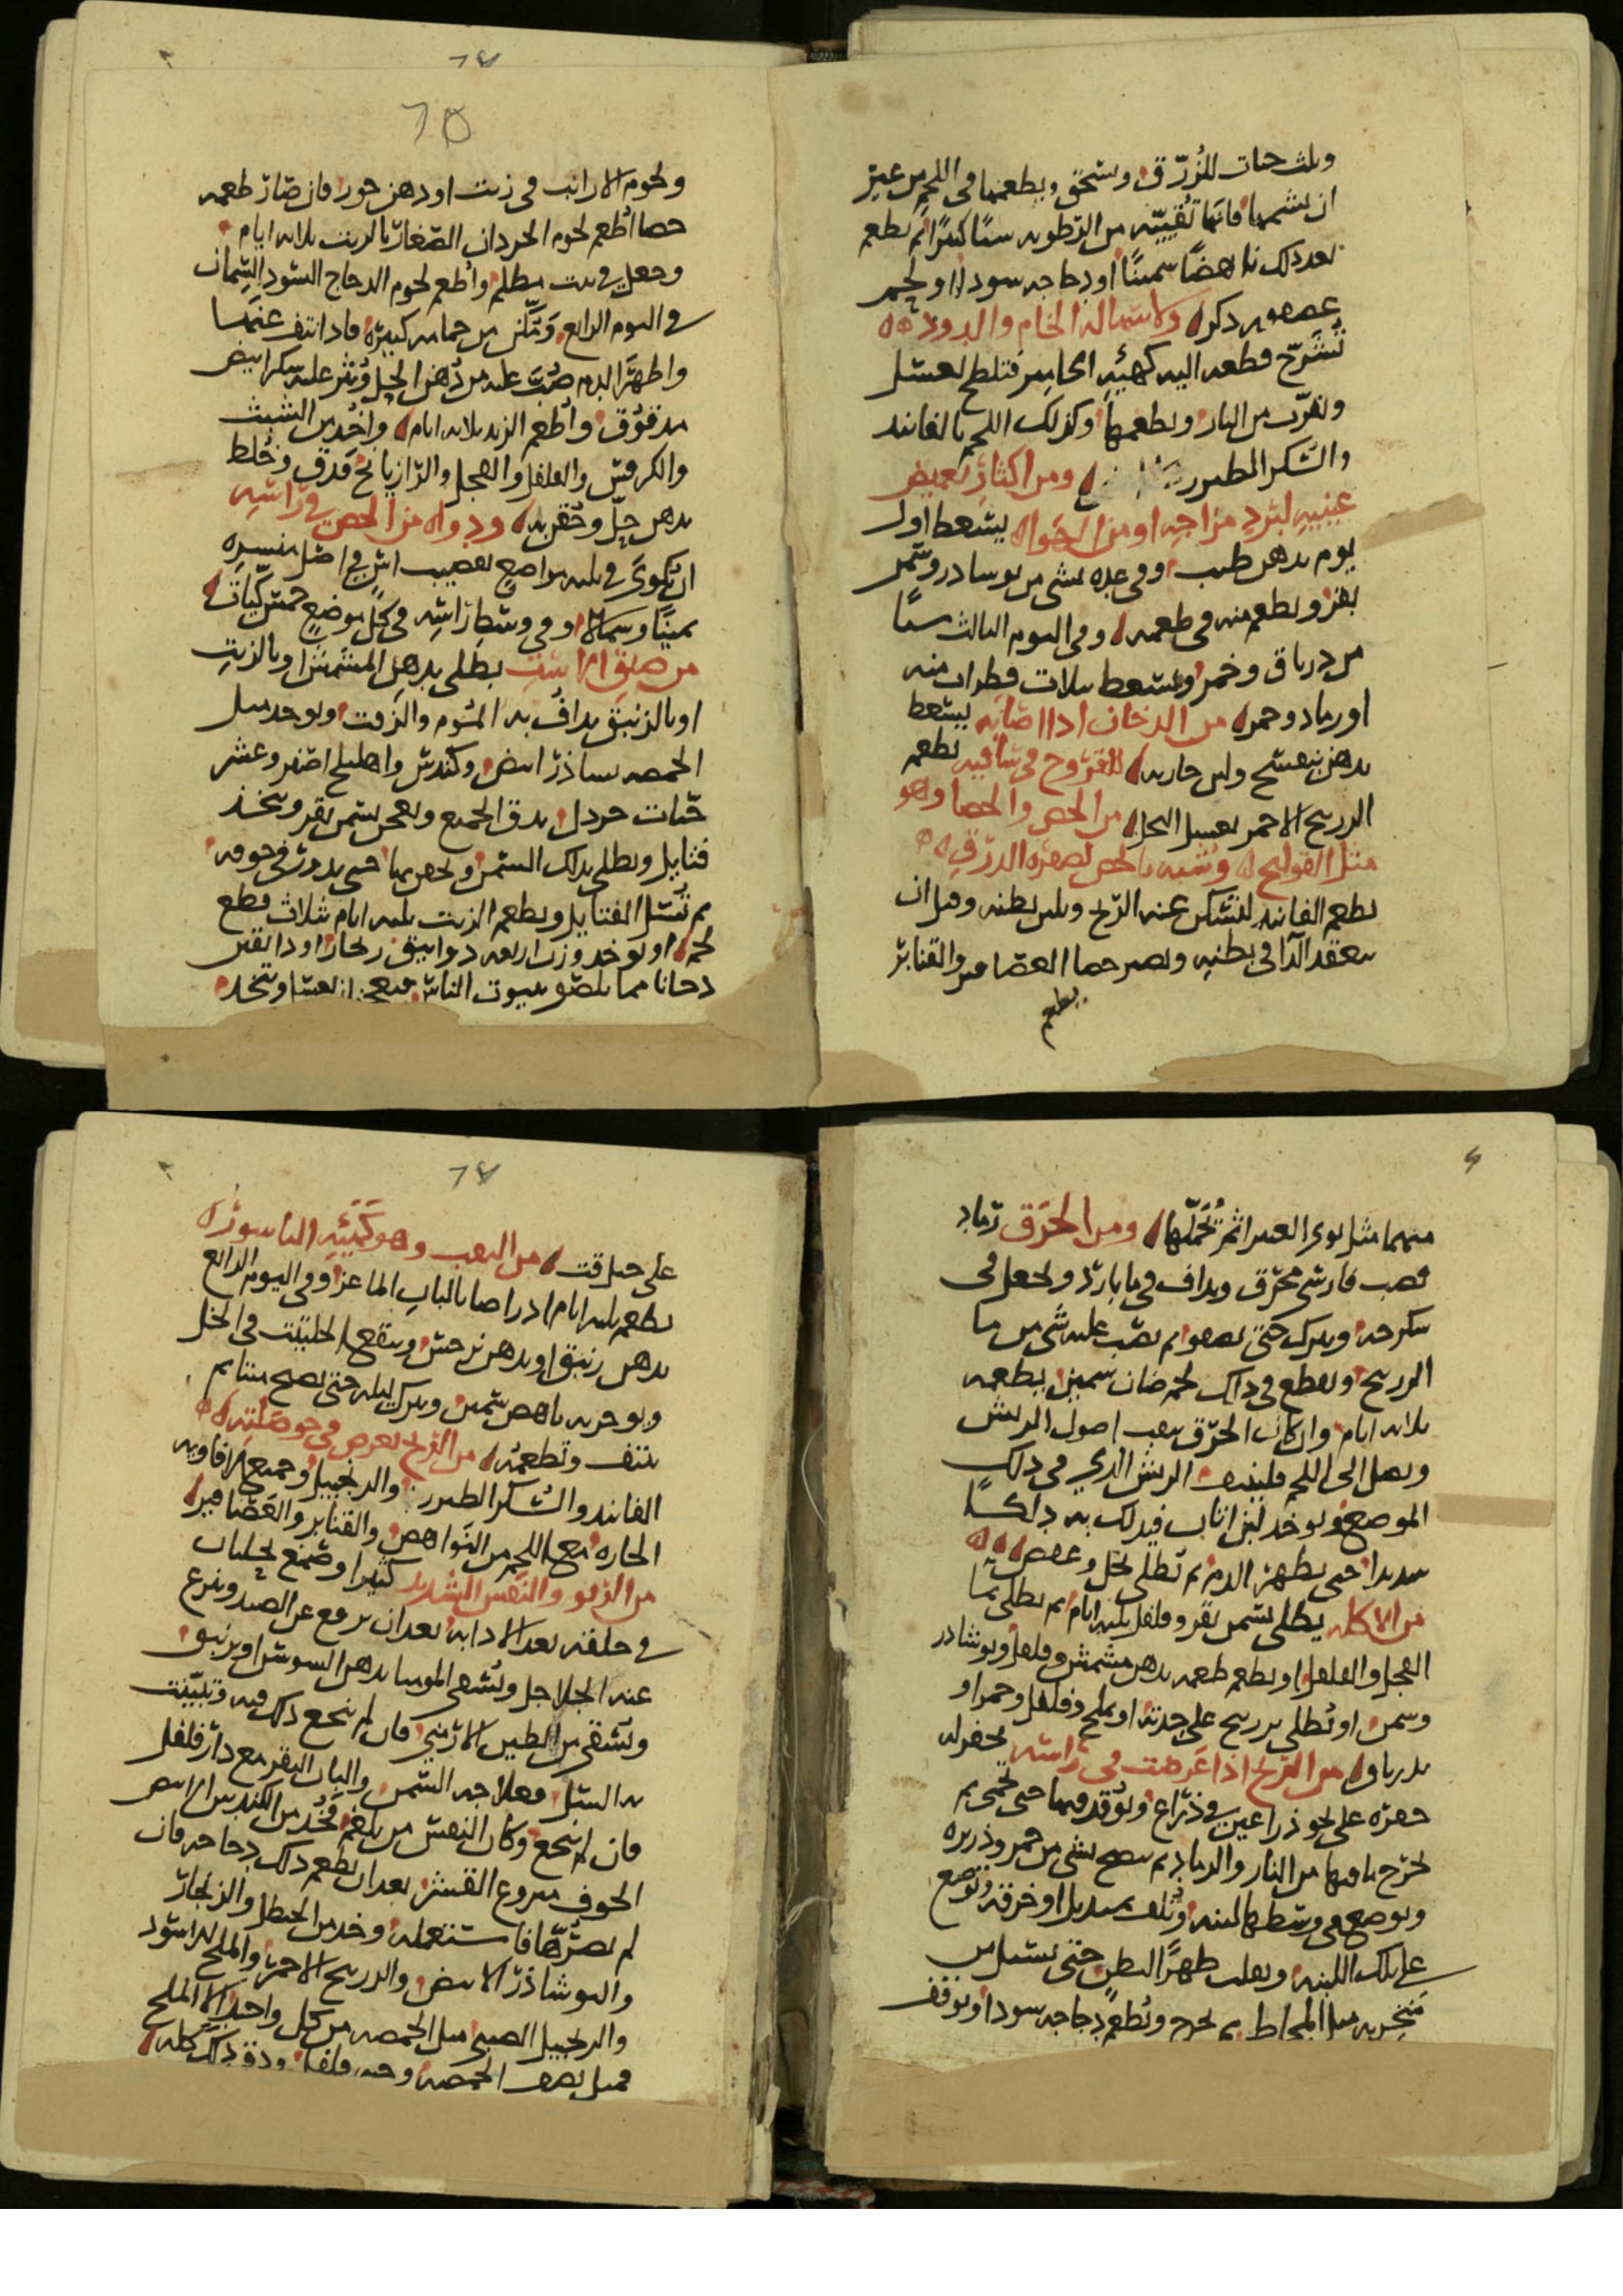 وثلث حبات للزُرّق وتسحق ويطعمها فى اللحم من غير
ان يشمها فانها تُقَيِّيه من الرّطوبه شيئًا كثيرًا ثم يُطعم
بعد ذلك ناهضًا سمينًا او دجاجه سودا او لحم
عصفور ذكر ولاستماله الخام والدود
تُشَرّح قطعه اليه كهيئه فتلطخ بعسل
وتقرّب من النار ويطعمها وكذلك اللحم بالفانيد
والسّكر الطبرزد ومن اكثار تغميض
عينيه لبرد مزاجه او من الخوا يسعط اول
يوم بدهن طيب وفى غده بشى من نوشادر وسمن
بقر ويطعم منه فى طعمه وفى اليوم الثالث شيئًا
من درياق وخمر ويسعط بثلاث قطرات منه
او رماد وخمر من الدخان اذا اصابه يسعط
بدهن بنفسج ولبن جاريه للقروح فى ساقيه يطعم
الزرنيخ الاحمر بعسل النحل من الحص والحصا وهو
مثل القولنج وتشبه بالحص لصفره الدرق
يطعم الفانيد لتسكن عنه الريح ويلين بطنه وقبل ان
ينعقد الدآ فى بطنه ويصير حصا العصافير والقنابر
يطعم
٦٥
ولحوم الارانب فى زيت او دهن جوز فان صار طعمه
حصا اُطعم لحوم الجرذان الصّغار بالزيت ثلاثه ايام
وجعل فى بيت مظلم واُطعم لحوم الدجاج السّود السِّمان
فى اليوم الرابع وتمكّن من حمامه كبيره فاذا نتف عنها
واظهر الدم صُبّ عليه من دُهن الحِل ونثر عليه سكر ابيض
مدقوق واُطعم الزبد ثلاثه ايام واُخذ من الشبث
والكرفس والفلفل والفجل والرّازيانج فدق وخُلط
بدهن حِلّ وحُقن به ودواه من الحص فى راسه
ان يُكوى فى ثلثه مواضع بقضيب اس فى اصل منسره
يمينًا وشمالا وفى وسط راسه فى كل موضع خمس كيّات
من ضيق الاست يطلى بدهن المشمش او بالزيت
او بالزنبق يداف به الثوم والزفت ويوخذ مثل
الحمصه نشادر ابيض وكندس واهليلج اصفر وعشر
حبّات خردل يدق الجميع ويعجن بسمن بقر ويتخذ
فتايل ويطلى بذلك السّمن ويحقن بها حتى يدور فى جوفه
ثم تُسَل الفتايل ويطعم الزيت ثلثه ايام ثلاث قطع
لحم او يوخذ وزن اربعه دوانيق زنجار او دانقين
دخانا مما يلصق ببيوت الناس فيعجن ويتخذ
منهما مثل نوى الغبيرا ثم يحملها ومن الحرق رماد
قصب فارسى محرّق ويداف فى ما بارد ويجعل فى
سكرجه ويترك حتى يصفو ثم يصب عليه شى من ما
الزرنيخ ويقطع فى ذلك لحم ضان سمين يطعمه
ثلاثه ايام وان كان الحرق ينقب اصول الريش
ويصل الى اللحم فلينتف الريش الذى فى ذلك
الموضع ويوخذ لبن اتان فيدلك به دلكًا
شديدا حتى يظهر الدم ثم تطلى بخل وعفص
من الاكله يطلى بسمن بقر وفلفل ثلثه ايام ثم يطلى بما
الفجل والفلفل او يطعم طعمه بدهن مشمش وفلفل ونوشادر
وسمن او تُطلى بزرنيخ على حدته او بملح وفلفل وخمر او
بدرياق من الريح اذا عَرضت فى راسه يحفر له
حفره على نحو ذراعين فى ذراع وتُوقد فيها حتى تحمى ثم
يُخرج ما فيها من النار والرماد ثم ينضح بشى من خمر وذريره
ويوضع فى وسطها لبنه ويُلف بمنديل او خرقه ويوضع
على تلك اللبنه ويقلب ظهرًا لبطن حتى يسيل من
منخريه مثل المخاط ثم يخرج ويُطعم دجاجه سودا ويوقف
على
٦٧
من النقب وهو كهيئه الناسور
يطعم ثلثه ايام بالبان الماعز وفى اليوم الرابع
بدهن زنبق او بدهن نرجس وينقع الحلتيت فى الخل
ويوجر به ناهض سمين ويترك ليله حتى يصبح ميتا ثم
ينتف وتطعمه من الريح تعرض فى حوصلته
الفانيد والسُّكر الطبرزد والزنجبيل وجميع الافاويه
الحاره مع اللحم من النَواهض والقنابر والعَصَافير
من الربو والنفس الشديد كثيرا وضع
فى حلقه بعد الادابه بعد ان يرفع عن الصيد وينزع
عنه الجلاجل ويُسقى الموميا بدهن السوسن او بزنبق
وتَسقى من الطين الارمنى فان لم ينجع ذلك فيه وتبيّنت
به السل فعلاجه السمن والبان البقر مع دار فلفل
فان لم ينجع وكان النفس من بلغم فخُذ من الكندس الابيض
الجوف منزوع القشر بعد ان يطعم ذلك دجاجه فان
لم يضُرّها فاستعمله وخذ من الحنظل والزنجار
والنوشاذر الابيض والزرنيخ الاحمر والملح الاسود
والزنجبيل الصينى مثل الحمصه من كل واحد الا الملح
فمثل نصف الحمصه وحبه فلفل ودق ذلك كله